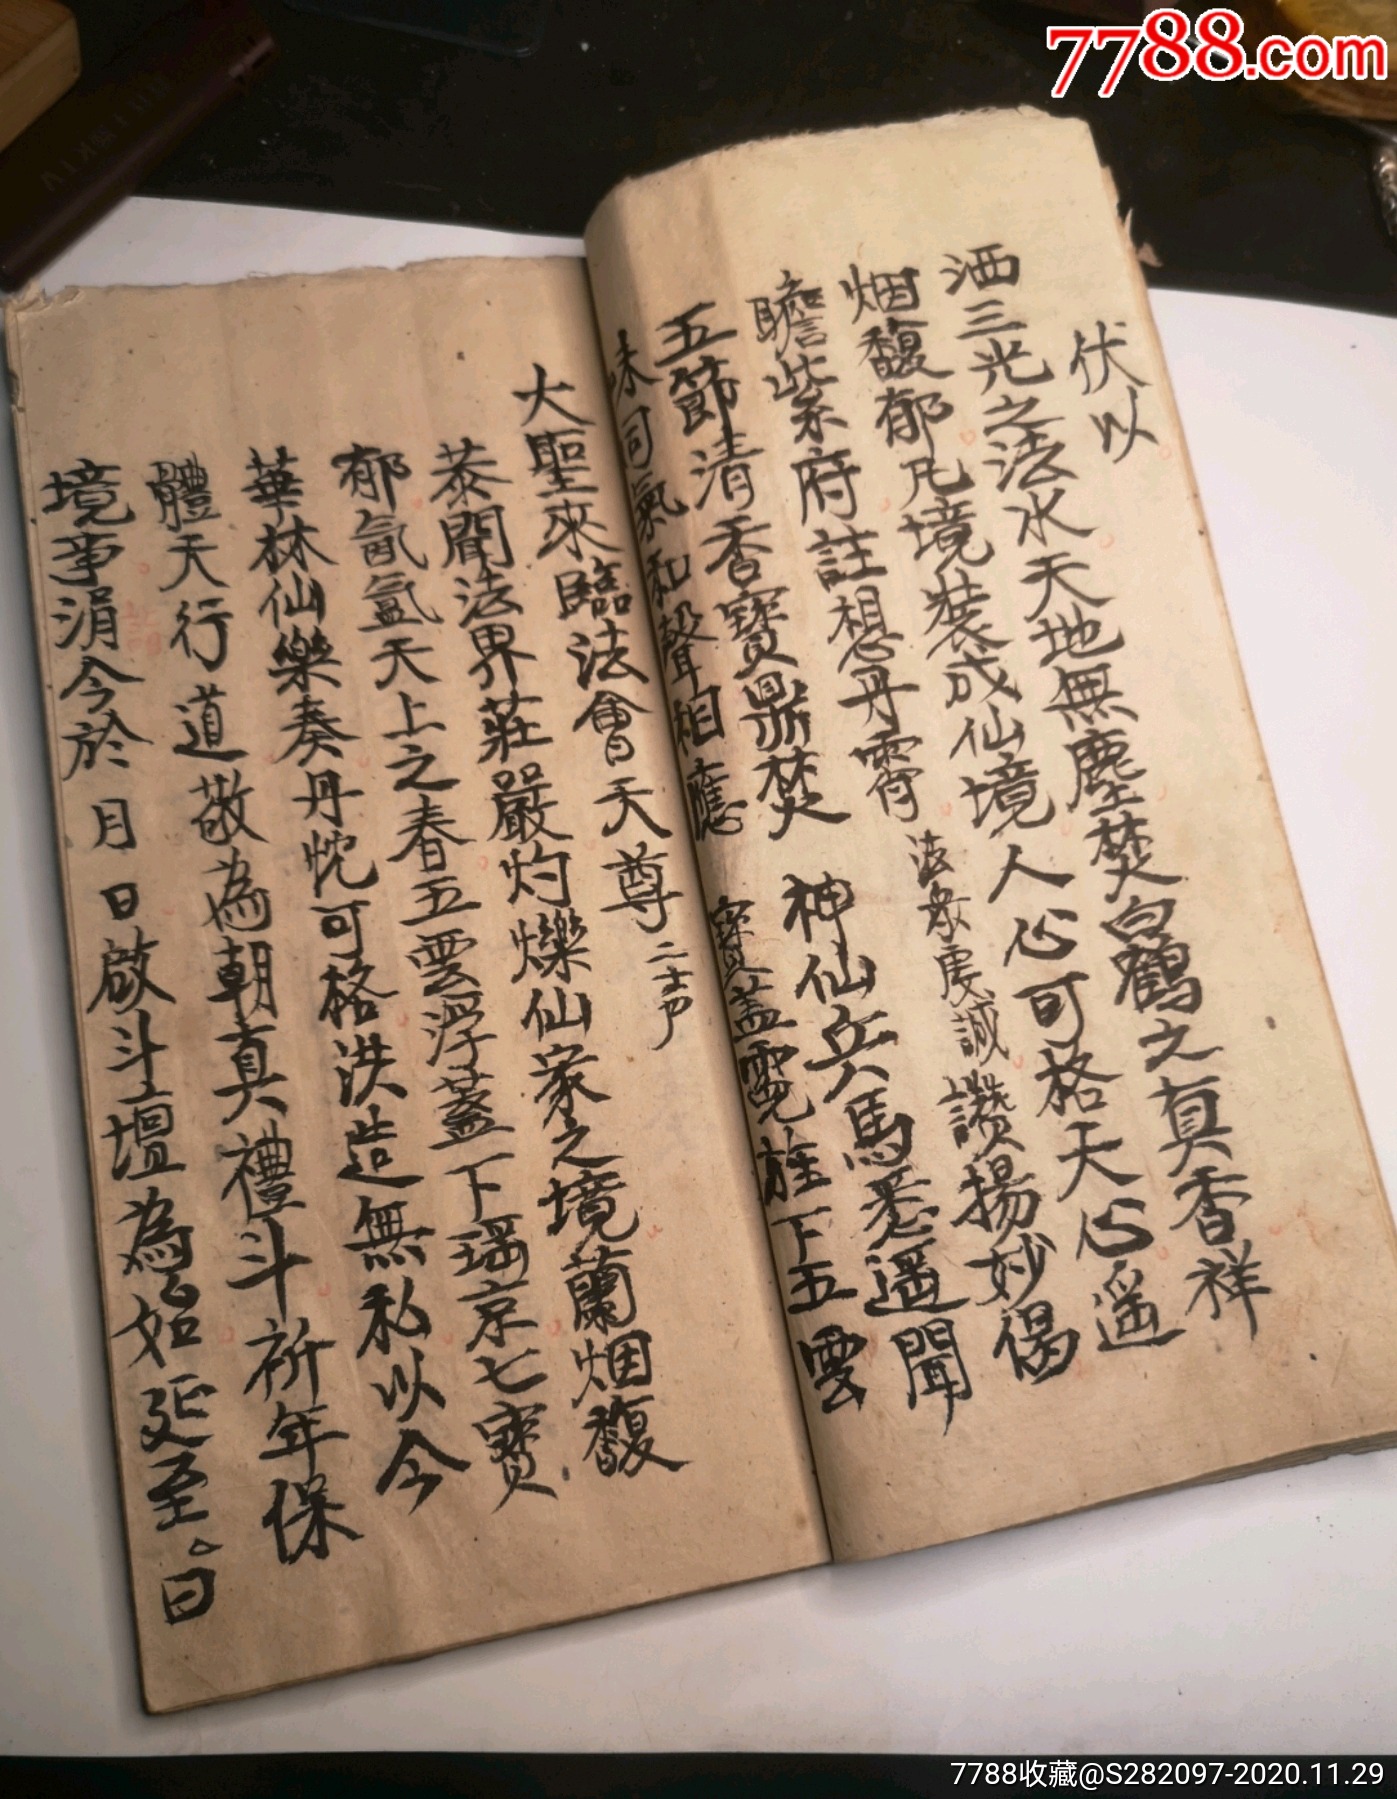 7788.com
伏以
洒三光之法水天地無塵焚白鶴之真香祥
烟馥郁凡境裝成仙境人心可格天心遥
瞻紫府註想丹霄 法衆虔誠讚揚妙偈
五節清香寶鼎焚 神仙兵馬悉遥聞
味同氣和聲相應 寶蓋霓旌下五雲
大聖來臨法會天尊
恭聞法界莊嚴灼爍仙家之境蘭烟馥
郁氤氲天上之春五雲浮蓋下瑶京七寶
華林仙樂奏丹忱可格洪造無私以今
體天行道敬為朝真禮斗祈年保
境事涓今於 月 日啟斗壇為始延至。日
7788收藏@S282097-2020.11.29